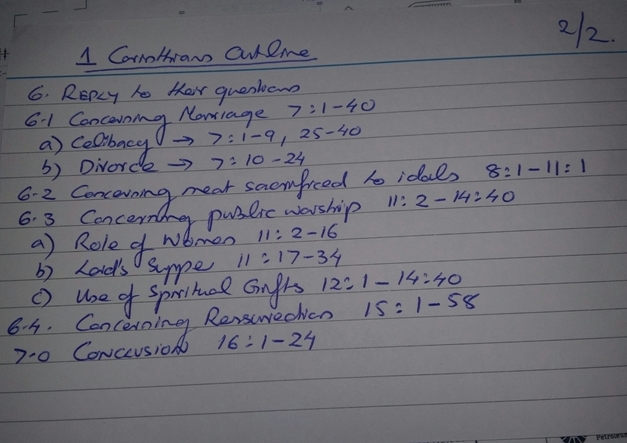 2/2.
1 Corinthians Outline
6. REPLY to their questions
6.1 Concerning Marriage 7:1-40
a) Celibacy → 7:1-9, 25-40
b) Divorce → 7:10-24
6.2 Concerning meat sacrificed to idols 8:1-11:1
6.3 Concerning public worship 11:2-14:40
a) Role of Women 11:2-16
b) Lord's Suppe 11:17-34
c) Use of Spiritual Gifts 12:1-14:40
6.4. Concerning Ressurection 15:1-58
7.0 CONCLUSION 16:1-24